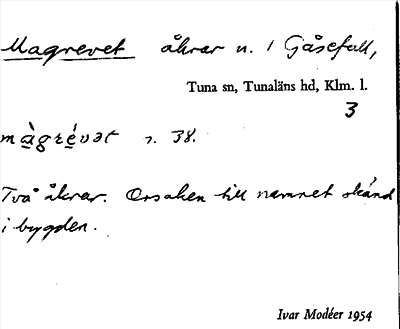 Magrevet åkrar n. 1 Gåsefall,
Tuna sn, Tunaläns hd, Klm. l.
3
màgrévət r. 38.
Två åkrar. Orsaken till namnet okänd
i bygden.
Ivar Modéer 1954